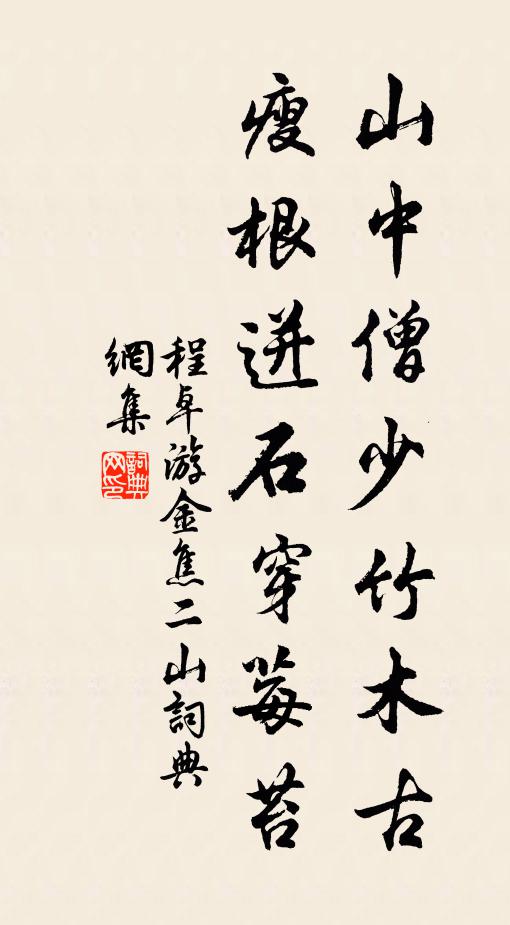 山中僧少竹木古
瘦根迸石穿莓苔
程卓游金焦二山詞典
網集
詞典网印